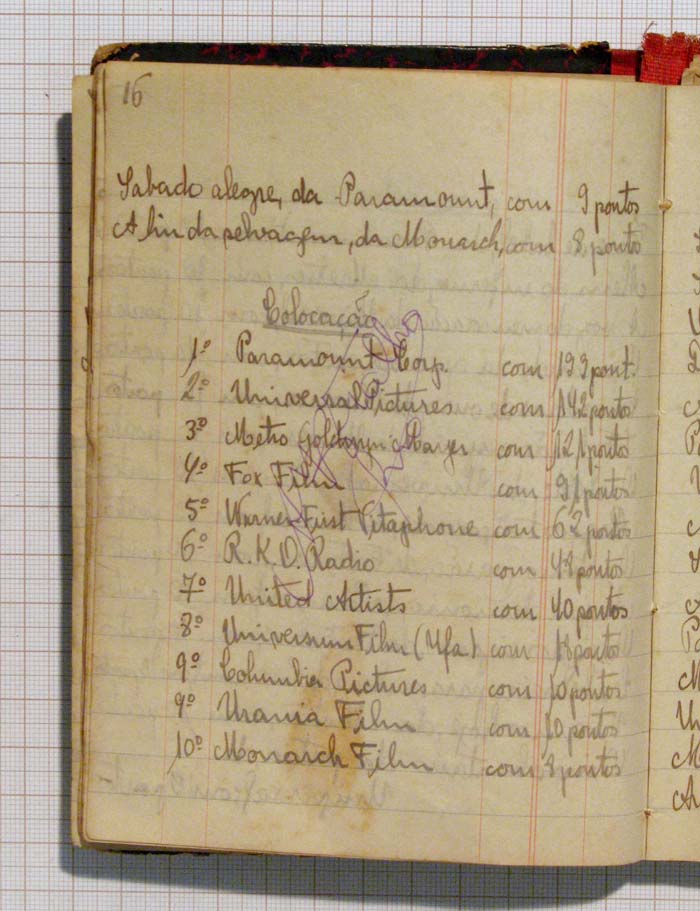 16
Sabado alegre, da Paramount, com 9 pontos
A da selvagem, da Monarch, com 8 pontos
Colocação
1º Paramount Corp. com 193 pont.
2º Universal Pictures com 142 pontos
3º Metro Goldwyn Mayer com 121 pontos
4º Fox Film com 91 pontos
5º Warner First Vitaphone com 62 pontos
6º R.K.O. Radio com 48 pontos
7º United Artists com 40 pontos
8º Universum Film (Ufa) com 18 pontos
9º Columbia Pictures com 10 pontos
9º Urania Film com 10 pontos
10º Monarch Film com 8 pontos